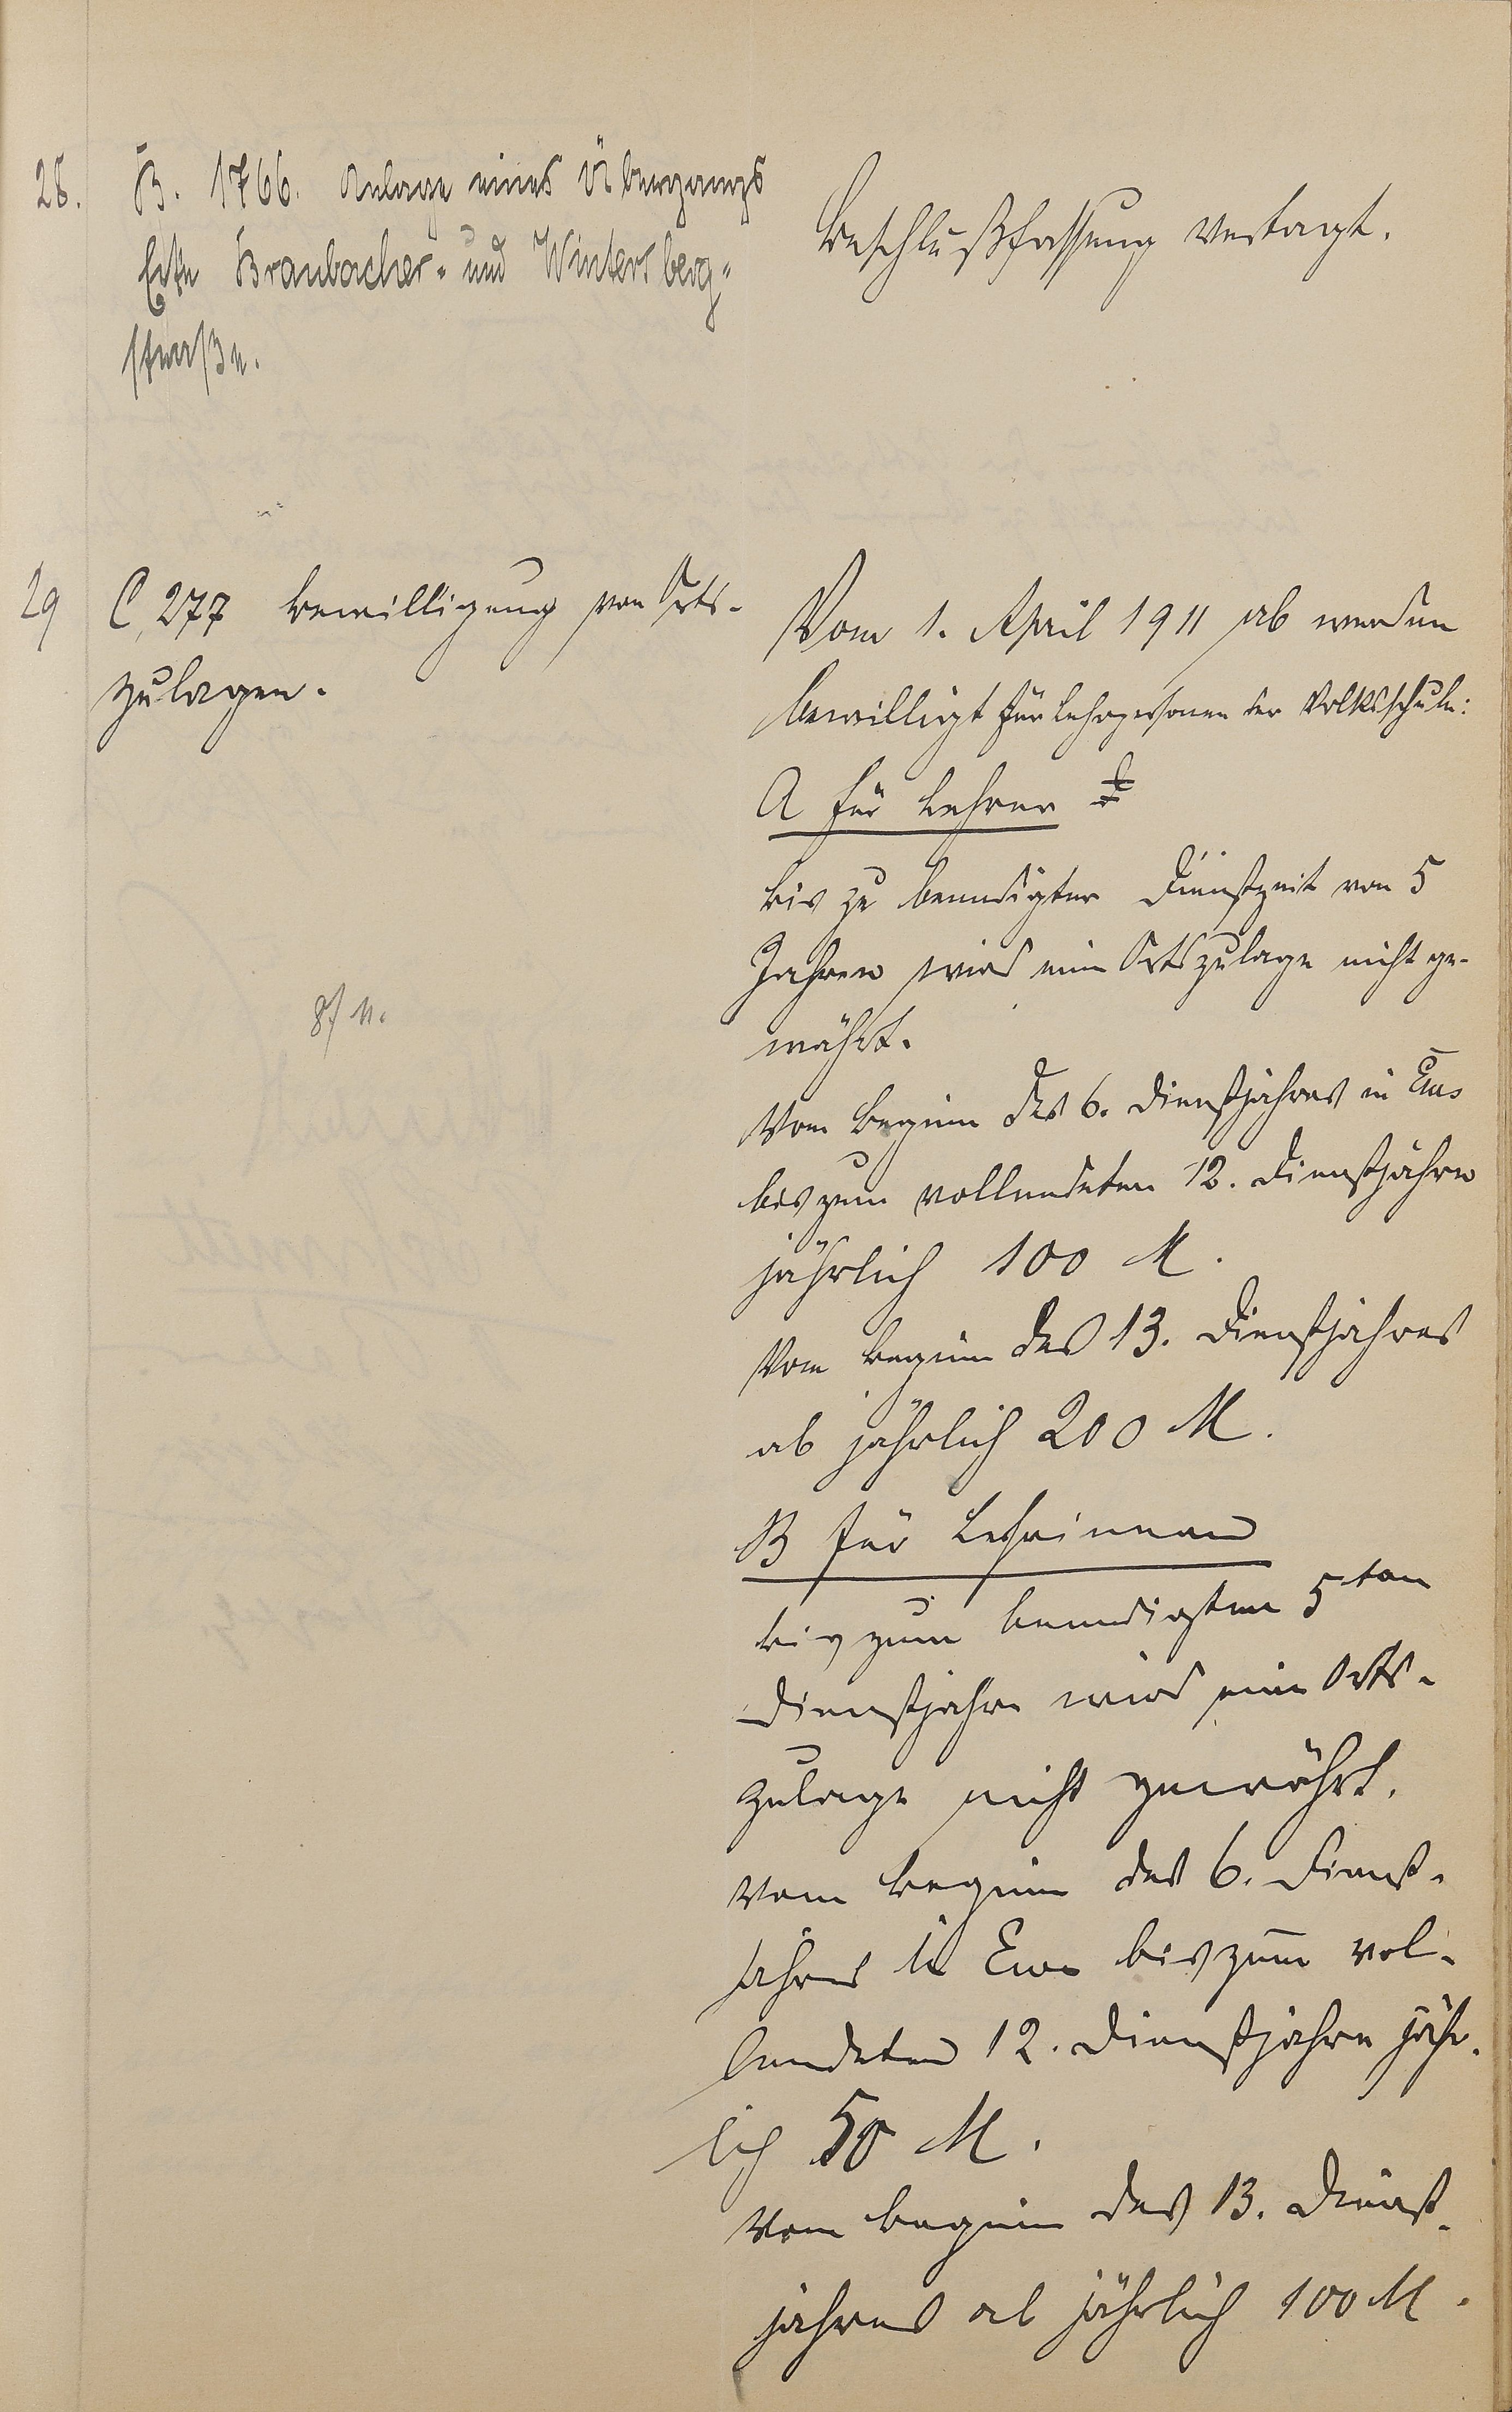 28.
B. 1766. Anlage eines Übergangs
Ecke Braubacher- und Wintersberg-
straße.
Beschlußfassung vertagt.
29
C, 277 Bewilligung von Orts-
zulagen.
8/11.
Vom 1. April 1911 ab werden
bewilligt für Lehrpersonen der Volksschule:
A für Lehrer
bis zu beendigter Dienstzeit von 5
Jahren wird eine Ortszulage nicht ge-
währt.
Vom Beginn des 6. Dienstjahres in Ems
bis zum vollendeten 12. Dienstjahre
jährlich 100 M.
Vom Beginn des 13. Dienstjahres
ab jährlich 200 M.
B für Lehrinnen
bis zum beendigten 5ten
Dienstjahre wird eine Orts-
zulage nicht gewährt.
Vom Beginn des 6. Dienst-
jahres in Ems bis zum vol-
lendeten 12. Dienstjahre jähr-
lich 50 M.
Vom Beginn des 13. Dienst-
jahres ab jährlich 100 M.